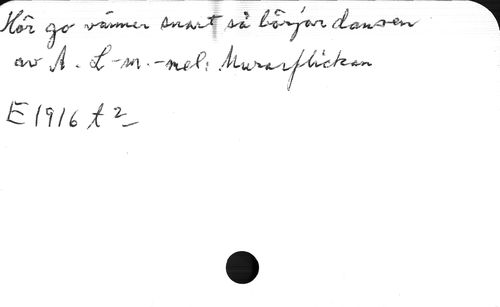 Hör go vänner snart så börjar dansen
av A. L-m. - mel: Murarflickan
E 1916 t 2